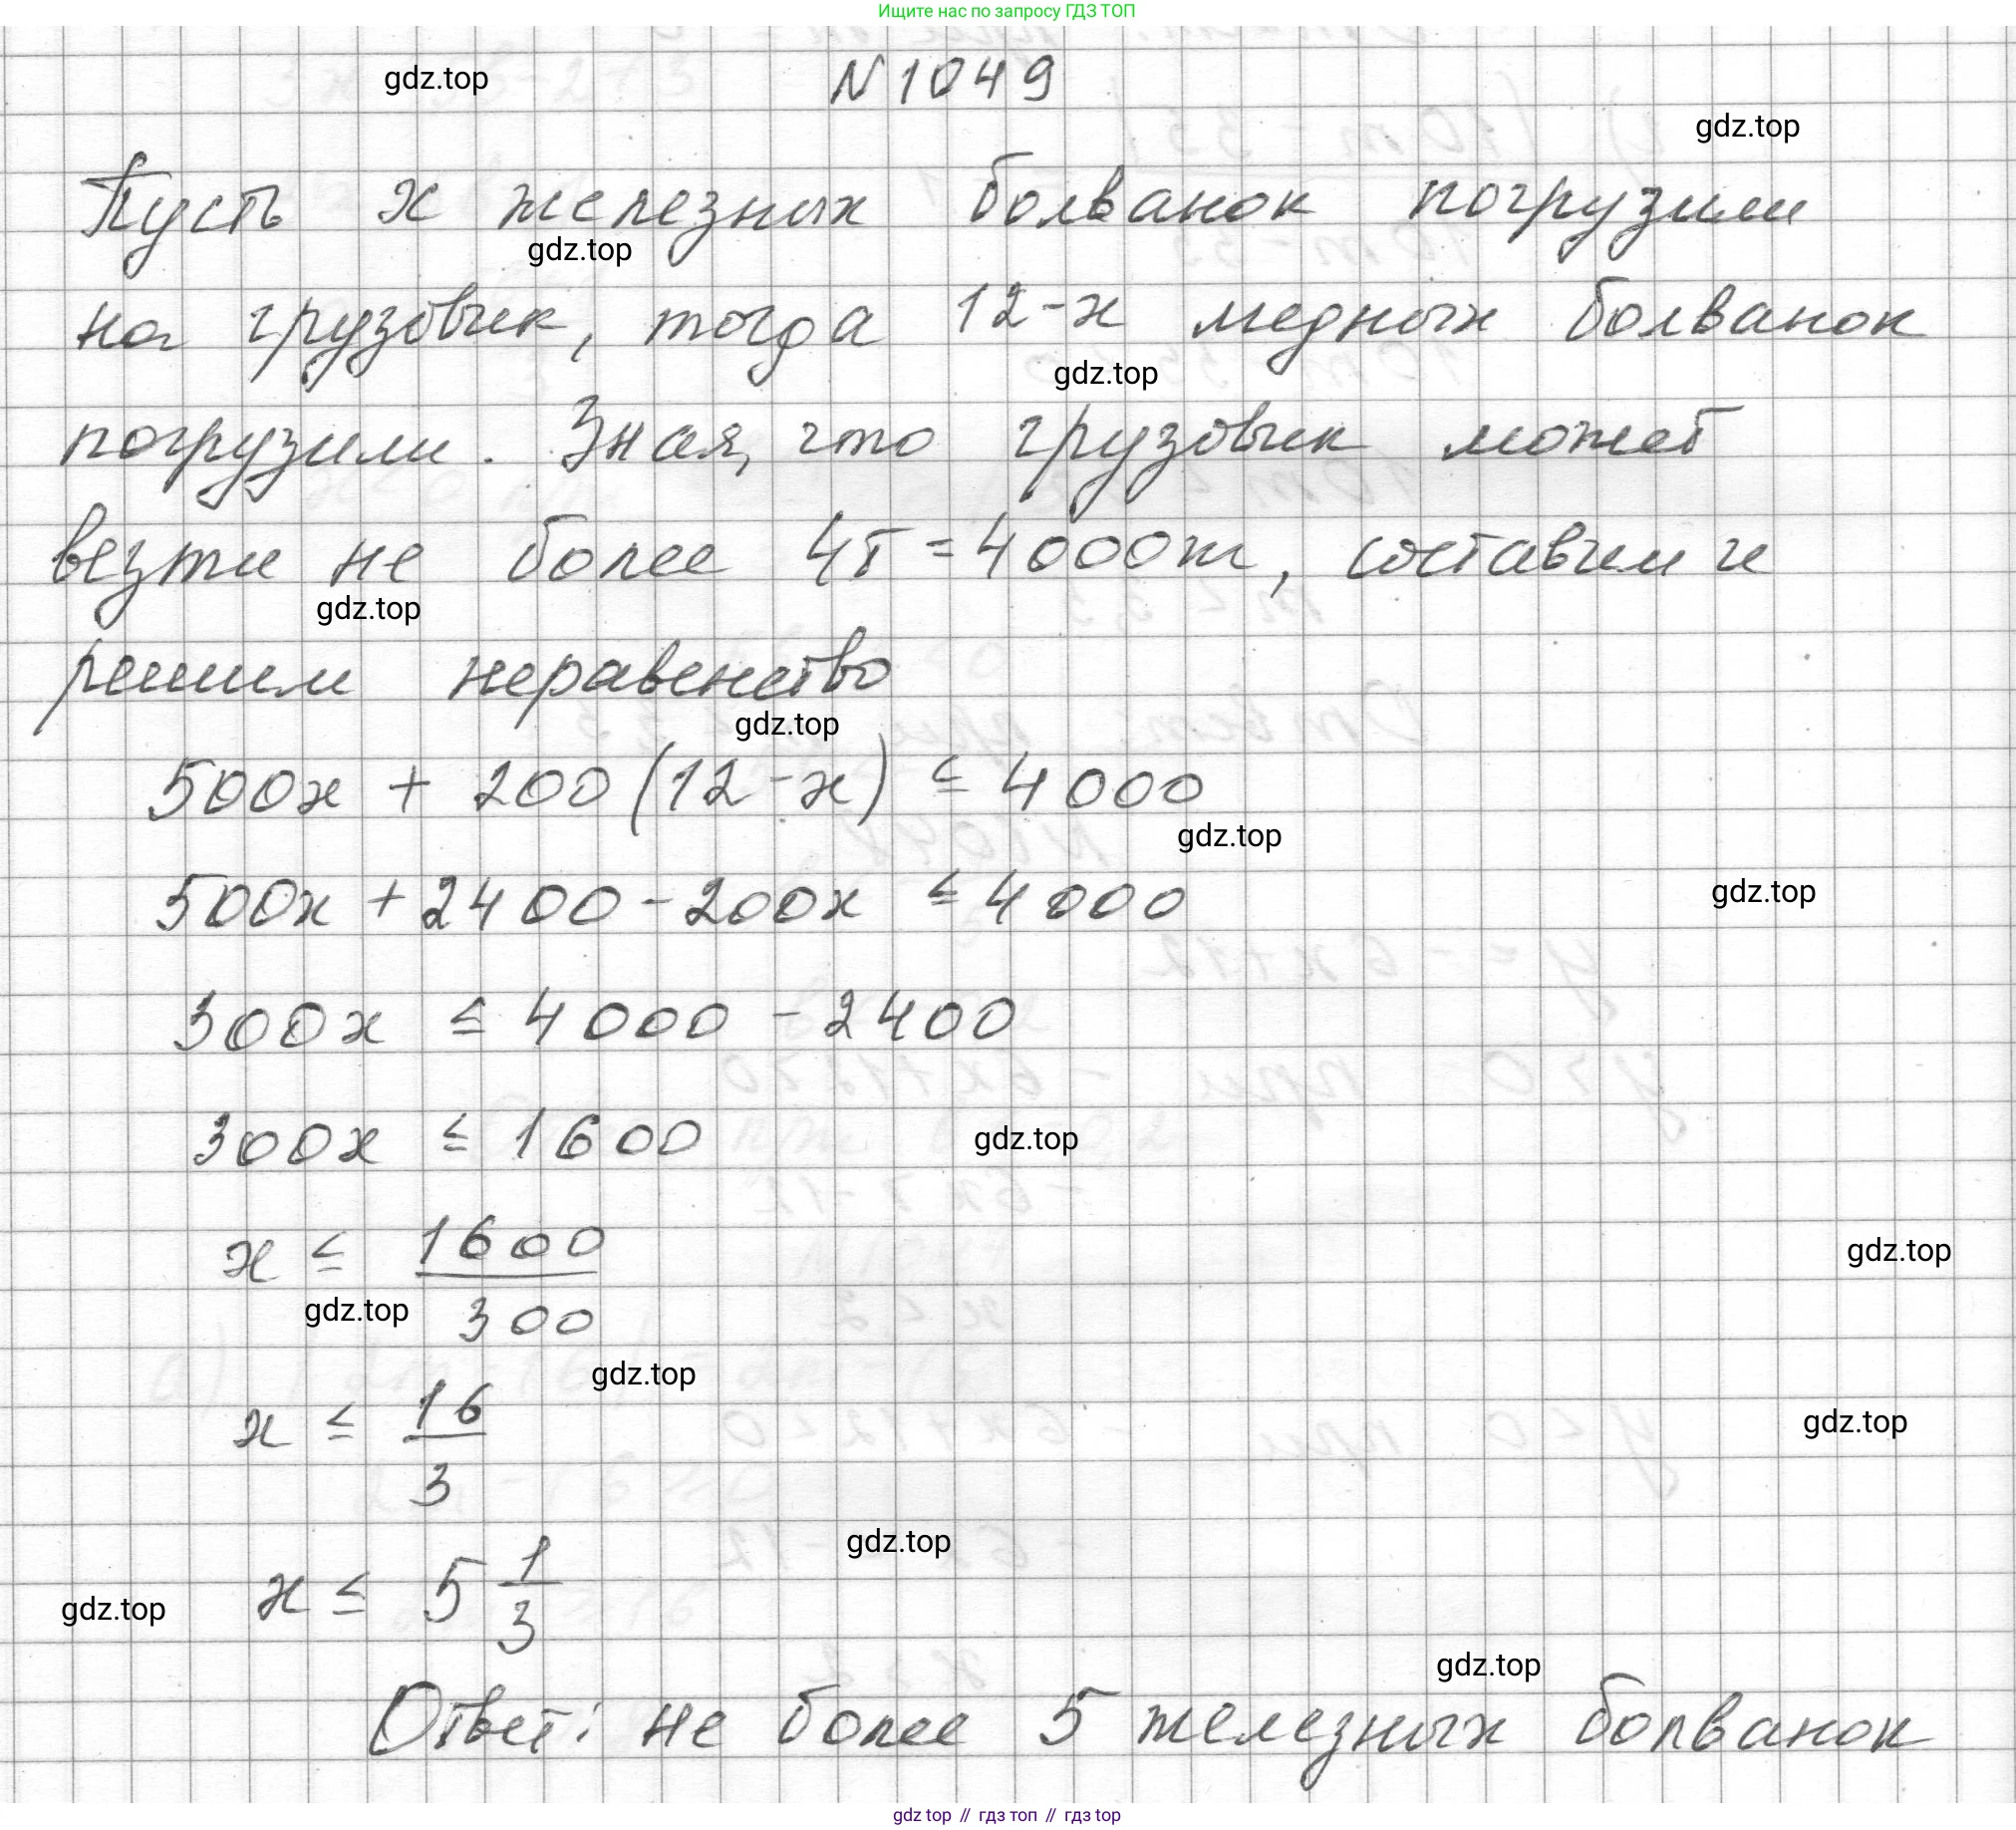 Ищите нас по запросу ГДЗ ТОП
gdz.top
N 1049
gdz.top
Пусть x железных болванок погрузили
gdz.top
на грузовик, тогда 12-x медных болванок
gdz.top
погрузили. Зная, что грузовик может
везти не более 4т = 4000т, составим и
gdz.top
решим неравенство
gdz.top
500x + 200(12-x) ≤ 4000
gdz.top
500x + 2400 - 200x ≤ 4000
gdz.top
300x ≤ 4000 - 2400
300x ≤ 1600
gdz.top
x ≤ 1600/300
gdz.top
gdz.top
gdz.top
x ≤ 16/3
gdz.top
gdz.top
x ≤ 5 1/3
gdz.top
gdz.top
Ответ: не более 5 железных болванок
gdz top // гдз топ // гдз top